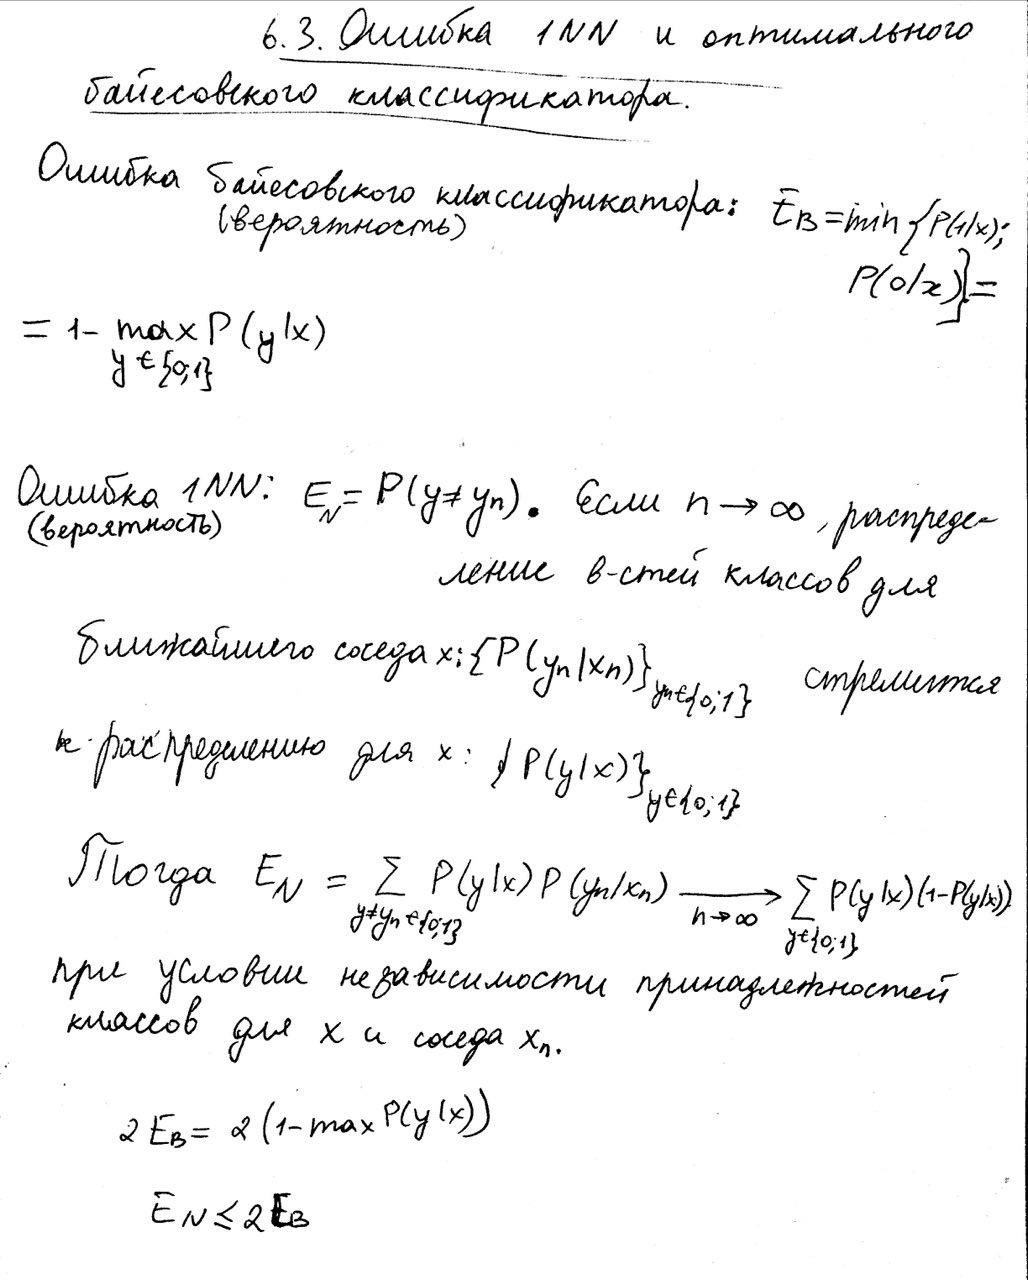 6.3. Ошибка 1NN и оптимального
байесовского классификатора.
Ошибка байесовского классификатора: E_B = min {P(1/x);
(вероятность)
P(0/x)} =
= 1 - max P(y|x)
y ∈ {0;1}
Ошибка 1NN: E_N = P(y ≠ y_n). Если n → ∞, распреде-
(вероятность)
ление в-стей классов для
ближайшего соседа x: {P(y_n|x_n)}_{y_n ∈ {0;1}} стремится
к распределению для x: {P(y|x)}_{y ∈ {0;1}}
Тогда E_N = ∑ P(y|x) P(y_n/x_n) → ∑ P(y|x)(1-P(y|x))
y ≠ y_n ∈ {0;1} n → ∞ y ∈ {0;1}
при условии независимости принадлежностей
классов для x и соседа x_n.
2 E_B = 2 (1 - max P(y|x))
E_N ≤ 2 E_B